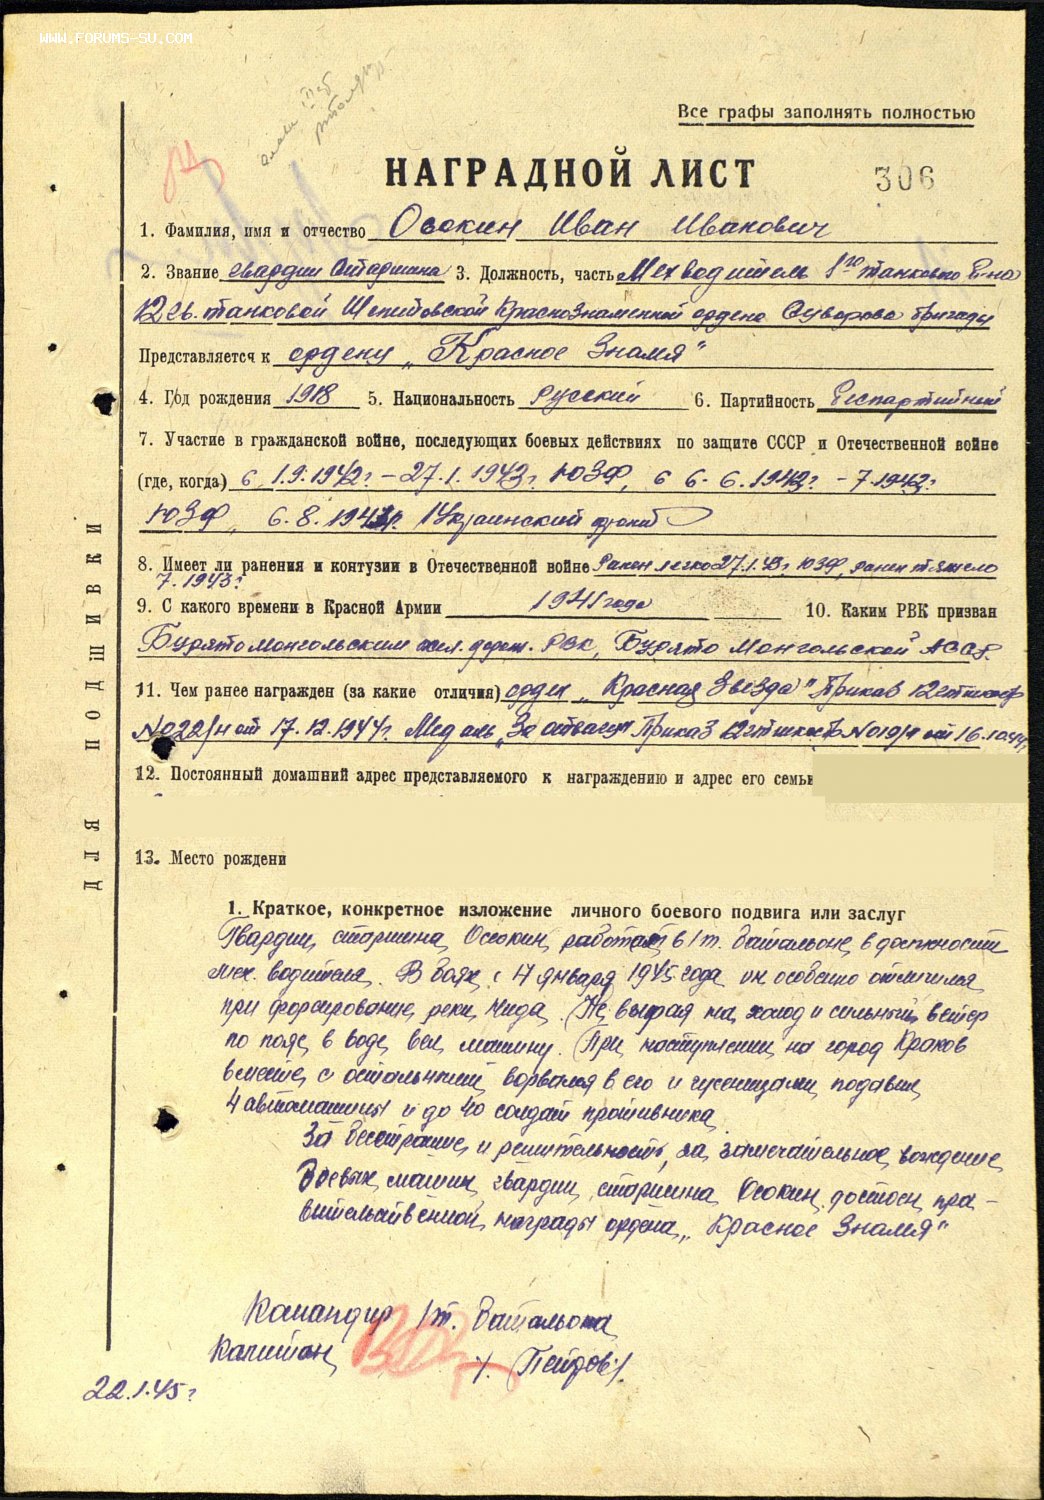 WWW.FORUMS-SU.COM
Все графы заполнять полностью
НАГРАДНОЙ ЛИСТ 306
1. Фамилия, имя и отчество Осокин Иван Иванович
2. Звание гвардии Старшина 3. Должность, часть Мехводитель 1го танкового б-на
12 гв. танковой Шепетовской Краснознаменной ордена Суворова бригады
Представляется к ордену „Красное Знамя"
4. Год рождения 1918 5. Национальность Русский 6. Партийность Беспартийный
7. Участие в гражданской войне, последующих боевых действиях по защите СССР и Отечественной войне
(где, когда) с 1.9.1942г. – 27.1.1943г. ЮЗФ, с 6.6.1943г. – 7.1943г.
ЮЗФ, с 8.194 г. 1 Украинский фронт
8. Имеет ли ранения и контузии в Отечественной войне Ранен легко 27.1.43г. ЮЗФ, ранен тяжело
7.1943г.
9. С какого времени в Красной Армии 1941 года 10. Каким РВК призван
Бурятомонгольским жел. дорож. РВК, Бурято Монгольской АССР.
11. Чем ранее награжден (за какие отличия) орден „Красная Звезда" Приказ 12
№022/н от 17.12.1944г. Медаль „За отвагу" Приказ 12 №019/н от 16.10.44г.
12. Постоянный домашний адрес представляемого к награждению и адрес его семьи
13. Место рождени
1. Краткое, конкретное изложение личного боевого подвига или заслуг
Гвардии старшина Осокин работает в 1 т. батальоне в должности
мех. водителя. В боях с 17 января 1945 года он особенно отличился
при форсировании реки Нида. Не взирая на холод и сильный ветер
по пояс в воде вел машину. При наступлении на город Краков
вместе с остальными ворвался в его и гусеницами подавил
4 автомашины и до 40 солдат противника.
За бесстрашие и решительность, за замечательное вождение
боевых машин гвардии старшина Осокин достоен пра-
вительственной награды ордена „Красное Знамя"
Командир 1 т. батальона
Капитан /Пейдов/.
22.1.45г.
ДЛЯ ПОДШИВКИ